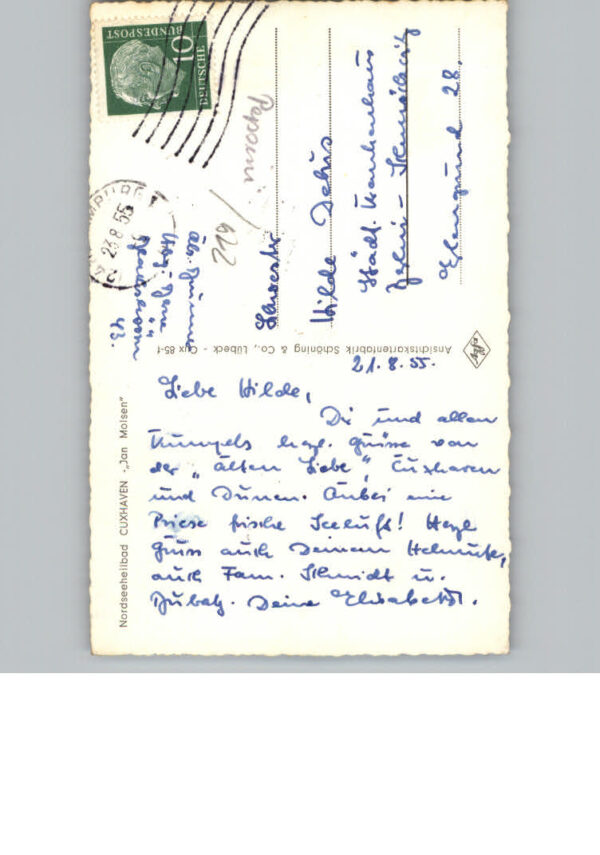 Nordseeheilbad CUXHAVEN - „Jan Molsen"
Ansichtskartenfabrik Schöning & Co., Lübeck - Cux 85-f
Agfa
DEUTSCHE
BUNDESPOST
10
23.8.55
622
Abs.
43.
Hilde
Städt. Krankenhaus
Berlin -
28.
21.8.55.
Liebe Hilde,
Dir und allen
Kumpels herzl. Grüsse von
der „Alten Liebe", Cuxhaven
und Dunen. Anbei eine
Priese frische Seeluft! Herzl
Gruss auch Deinem Helmut,
auch Fam. Schmidt u.
Deine Elisabeth.